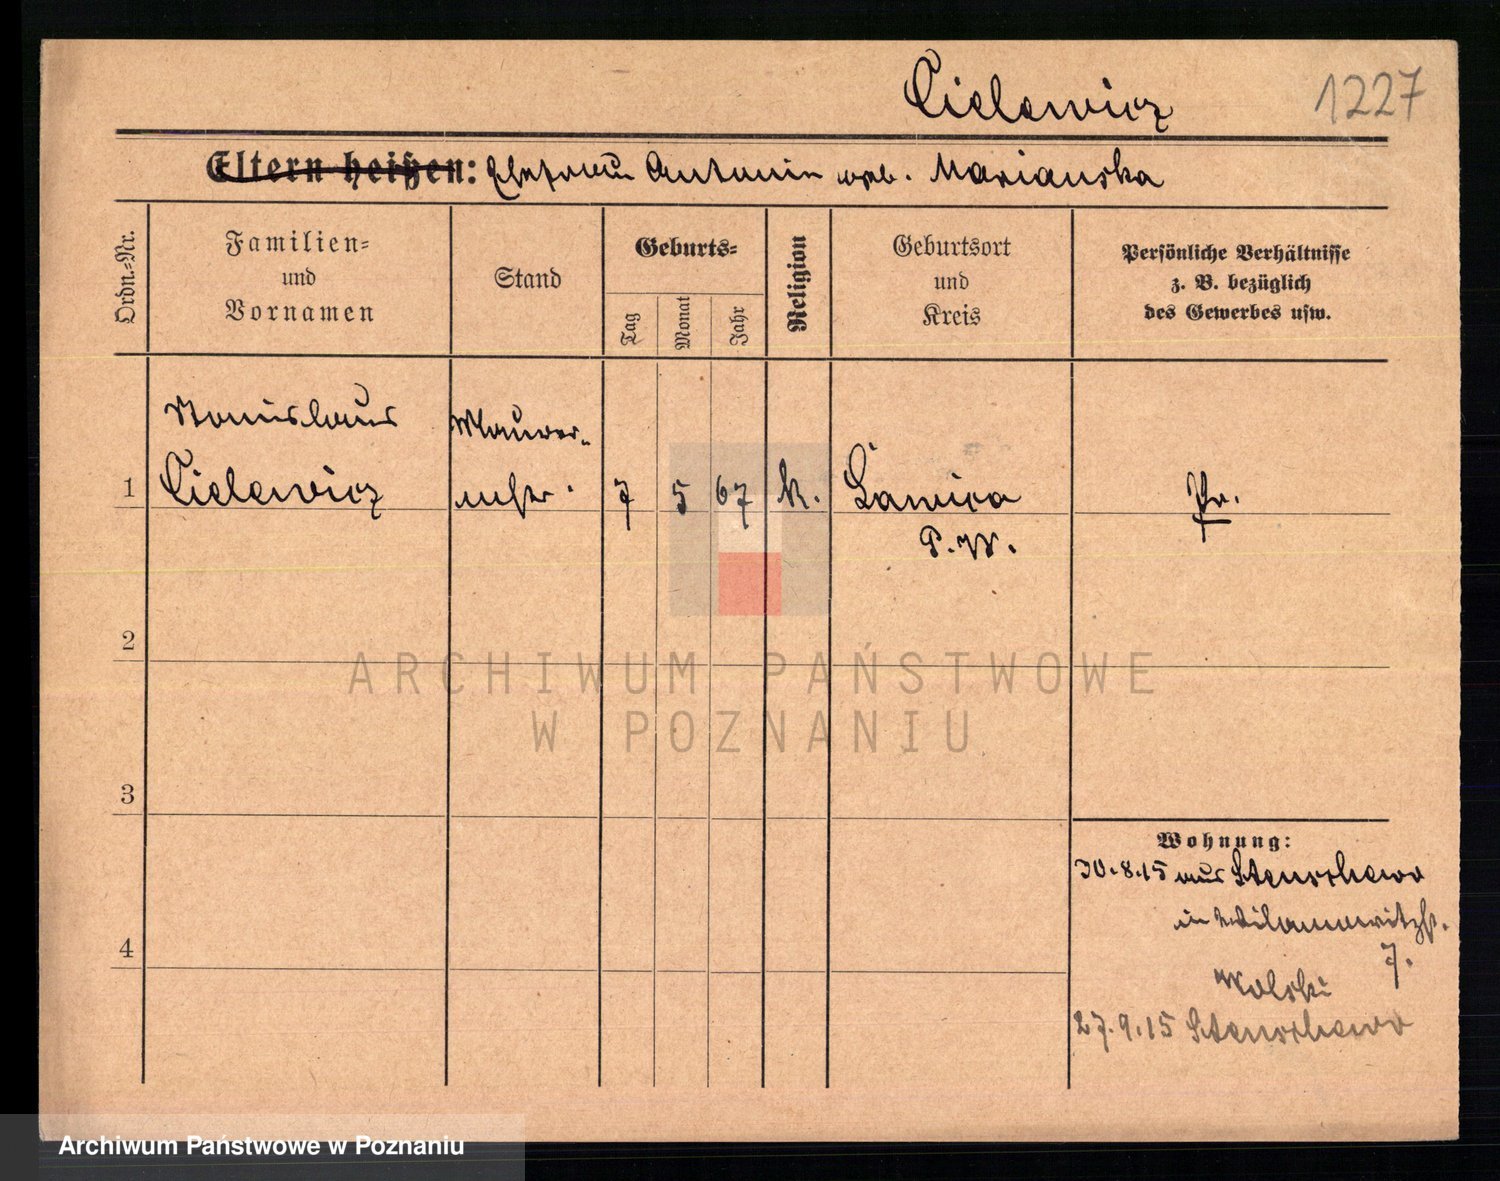 Cielewicz
1227
Eltern heißen: Ehefrau Antonin geb. Marianska
Ordn.-Nr.
Familien-
und
Vornamen
Stand
Geburts-
Tag
Monat
Jahr
Religion
Geburtsort
und
Kreis
Persönliche Verhältnisse
z. B. bezüglich
des Gewerbes usw.
Stanislaus
Maurer-
1 Cielewicz mstr. 7 5 67 k. Ławica Pr.
P. W.
2
3
4
Wohnung:
30.8.15 aus Stenschewo
in Wilamowitzstr.
7.
Wolski
27.9.15 Stenschewo
ARCHIWUM PAŃSTWOWE
W POZNANIU
Archiwum Państwowe w Poznaniu